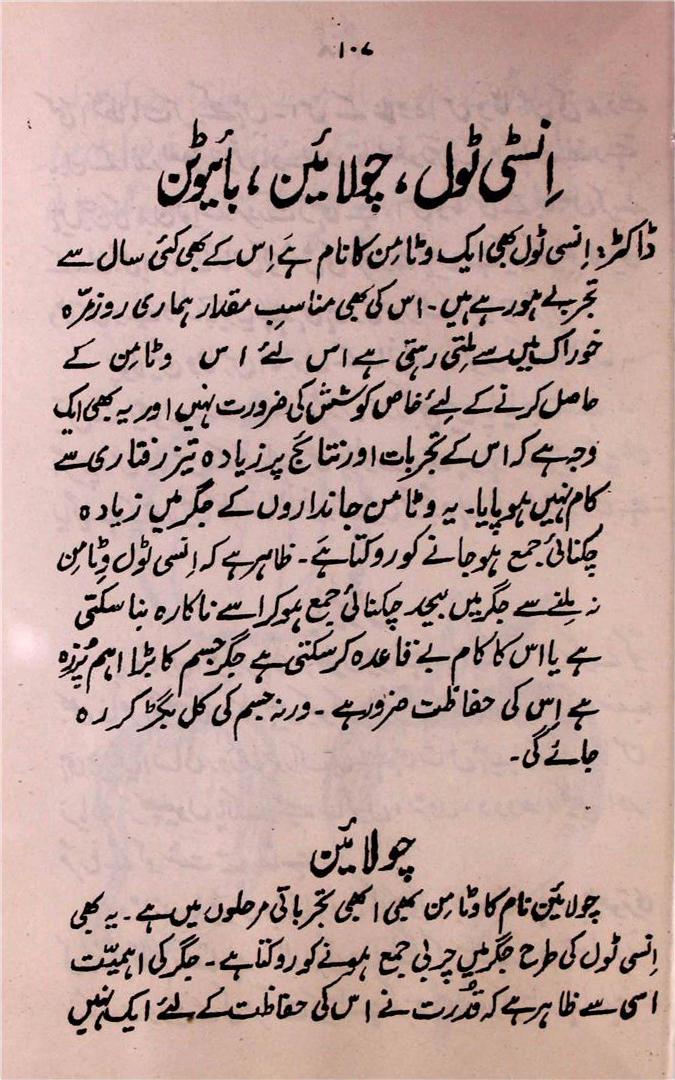 ۱۰۷
اِنسٹی ٹول، چولائین، بائیوٹن
ڈاکٹر: اِنسی ٹول بھی ایک وٹامن کا نام ہے اِس کے بھی کئی سال سے
تجربے ہو رہے ہیں۔ اس کی بھی مناسب مقدار ہماری روزمرّہ
خوراک میں سے ملتی رہتی ہے اس لئے اس وٹامن کے
حاصل کرنے کے لیے خاص کوشش کی ضرورت نہیں اور یہ بھی ایک
وجہ ہے کہ اس کے تجربات اور نتائج پر زیادہ تیز رفتاری سے
کام نہیں ہو پایا۔ یہ وٹامن جانداروں کے جگر میں زیادہ
چکنائی جمع ہو جانے کو روکتا ہے۔ ظاہر ہے کہ اِنسی ٹول وٹامن
نہ ملنے سے جگر میں بیحد چکنائی جمع ہو کر اسے ناکارہ بنا سکتی
ہے یا اس کا کام بے قاعدہ کر سکتی ہے جگر جسم کا بڑا اہم پُرزہ
ہے اِس کی حفاظت ضرور ہے۔ ورنہ جسم کی کل بگڑ کر رہ
جائے گی۔
چولائین
چولائین نام کا وٹامن بھی ابھی تجرباتی مرحلوں میں ہے۔ یہ بھی
اِنسی ٹول کی طرح جگر میں چربی جمع ہونے کو روکتا ہے۔ جگر کی اہمیّت
اسی سے ظاہر ہے کہ قُدرت نے اس کی حفاظت کے لئے ایک نہیں